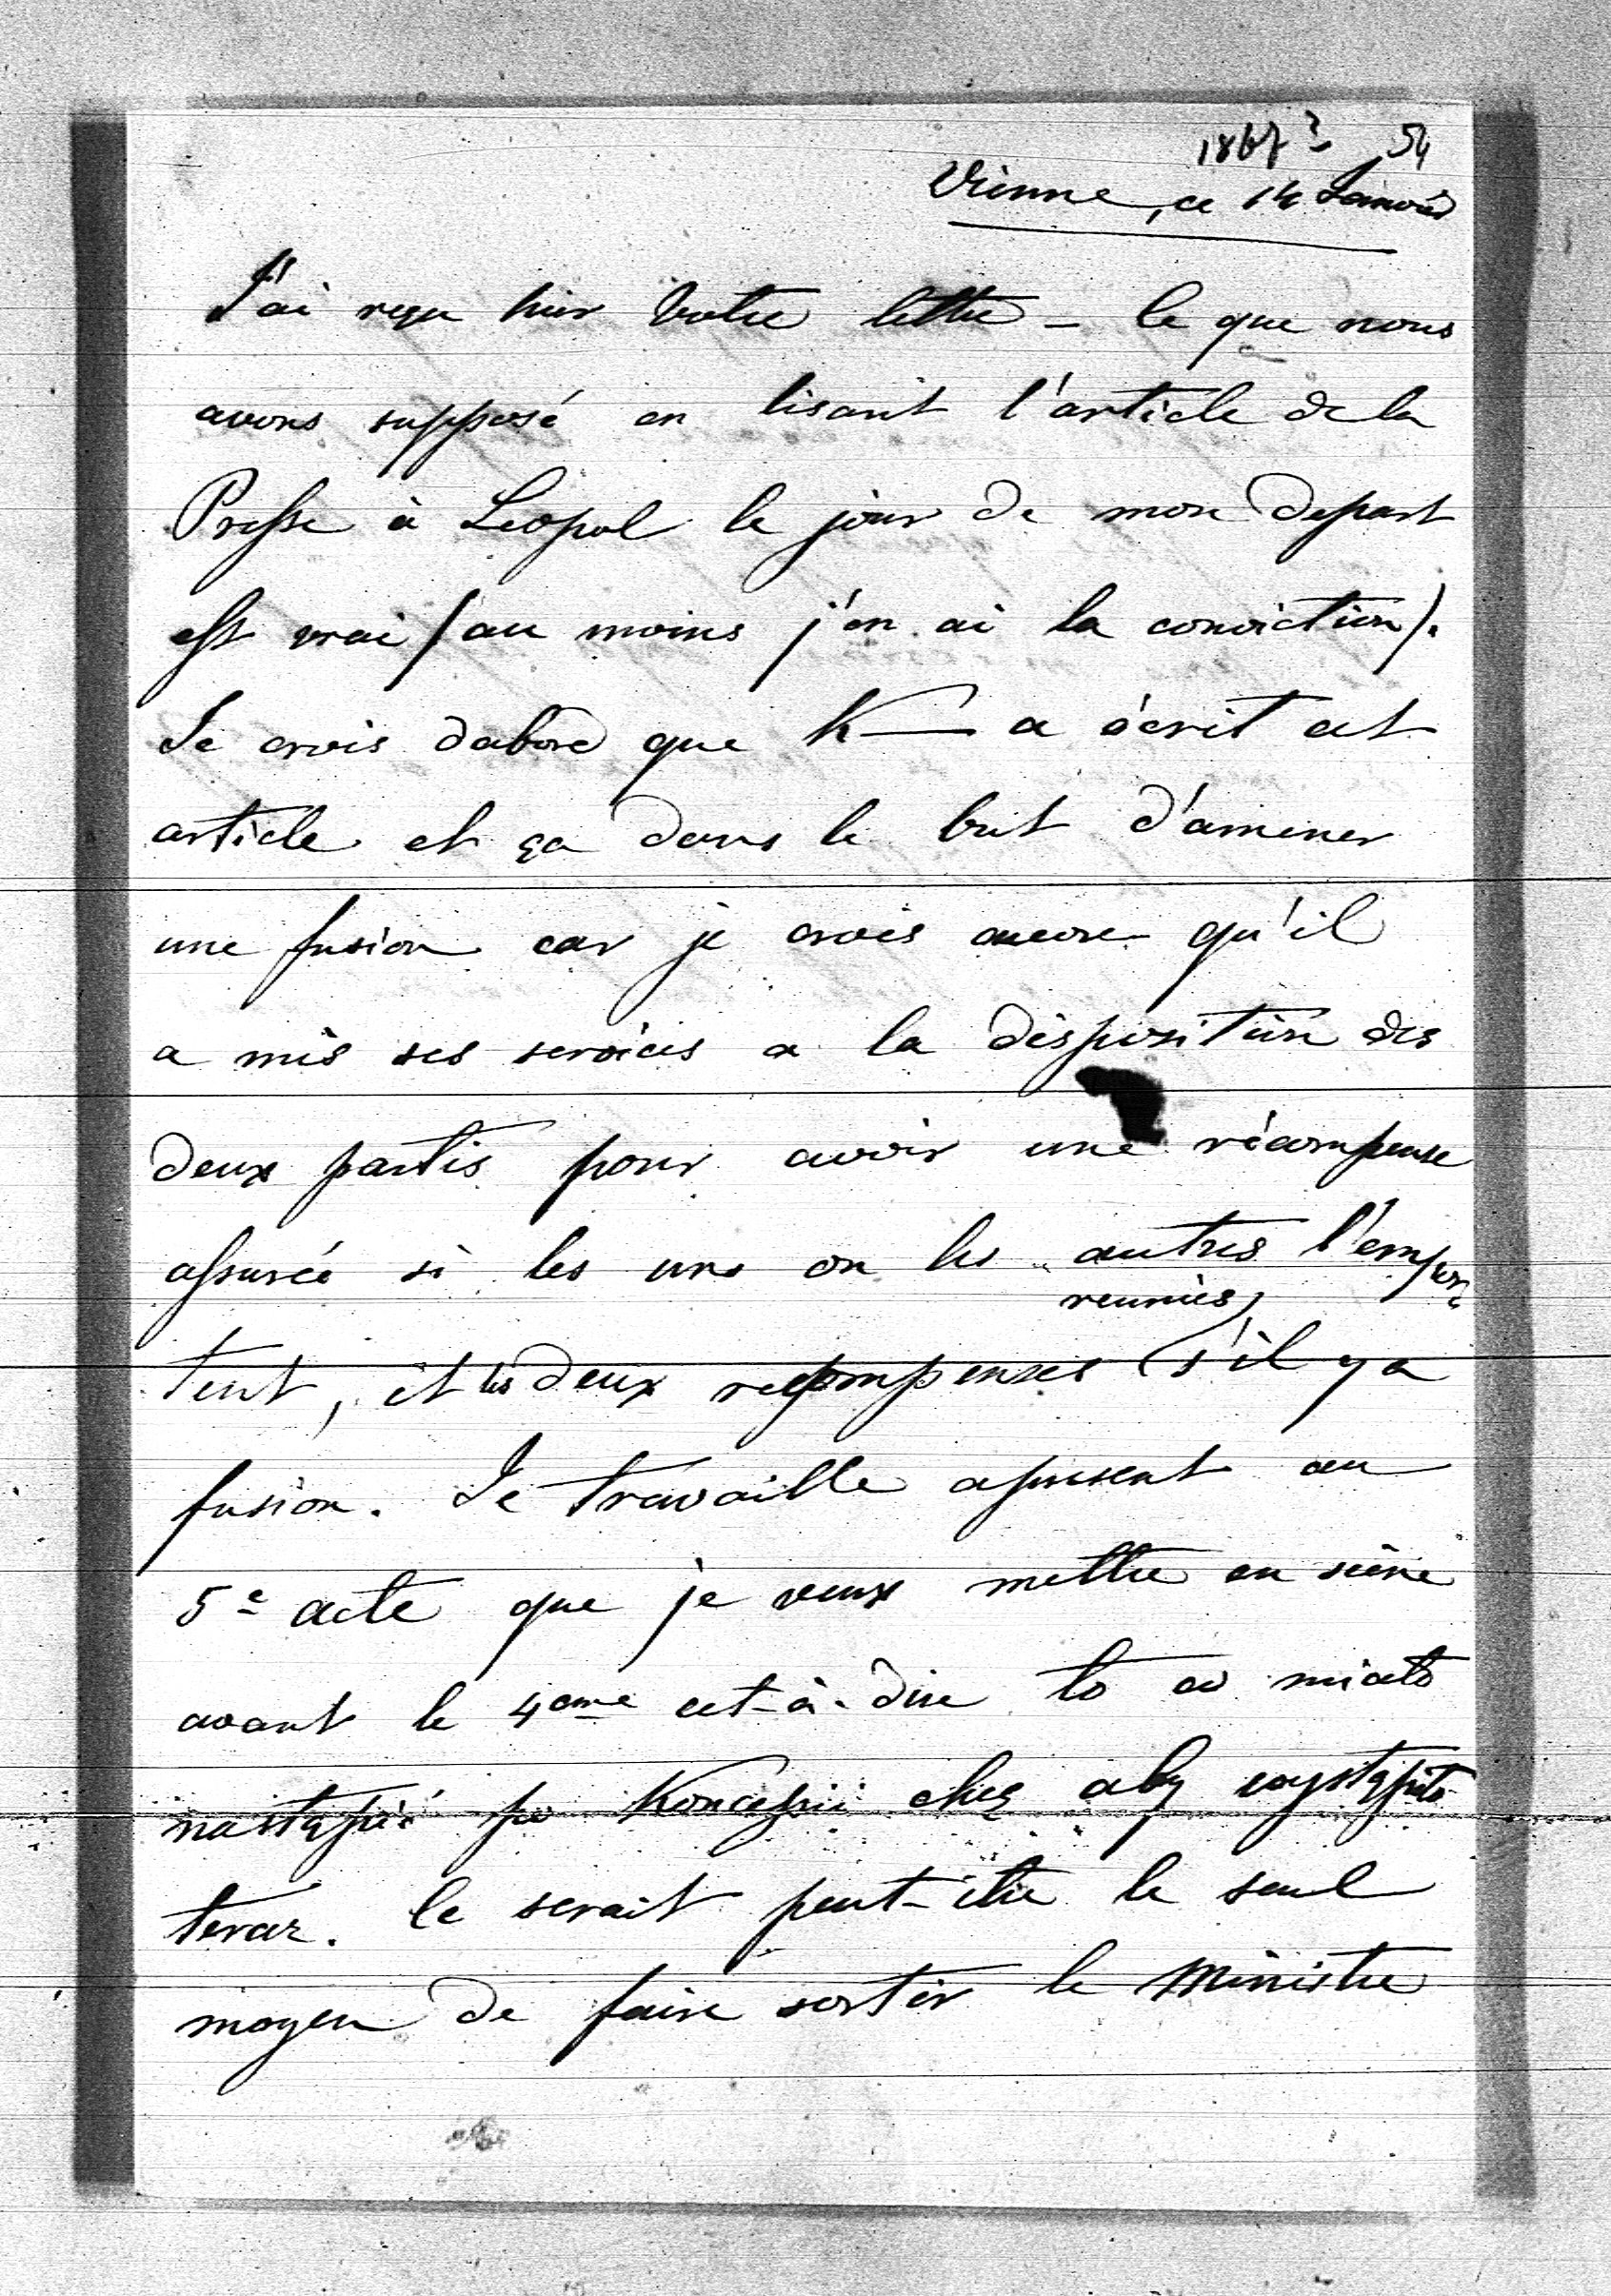 1867? 54
Vienne, ce 14 Janvier
J'ai reçu hier Votre lettre – Ce que nous
avons supposé en lisant l'article de la
Presse à Leopol le jour de mon depart
est vrai (au moins j'en ai la conviction).
Je crois dabord que K— a écrit cet
article et ça dans le but d'amener
une fusion car je crois encore qu'il
a mis ses services a la disposition des
deux partis pour avoir une récompense
assurée si les uns ou les autres l'empor-
reunies
tent, et les deux recompenses s'il y a
fusion. Je travaille apresent au
5e acte que je veux mettre en scène
avant le 4eme cet-à-dire to co miało
nastąpić po Koncessii chcę aby wystąpiło
teraz. Ce serait peut-être le seul
moyen de faire sortir le Ministre